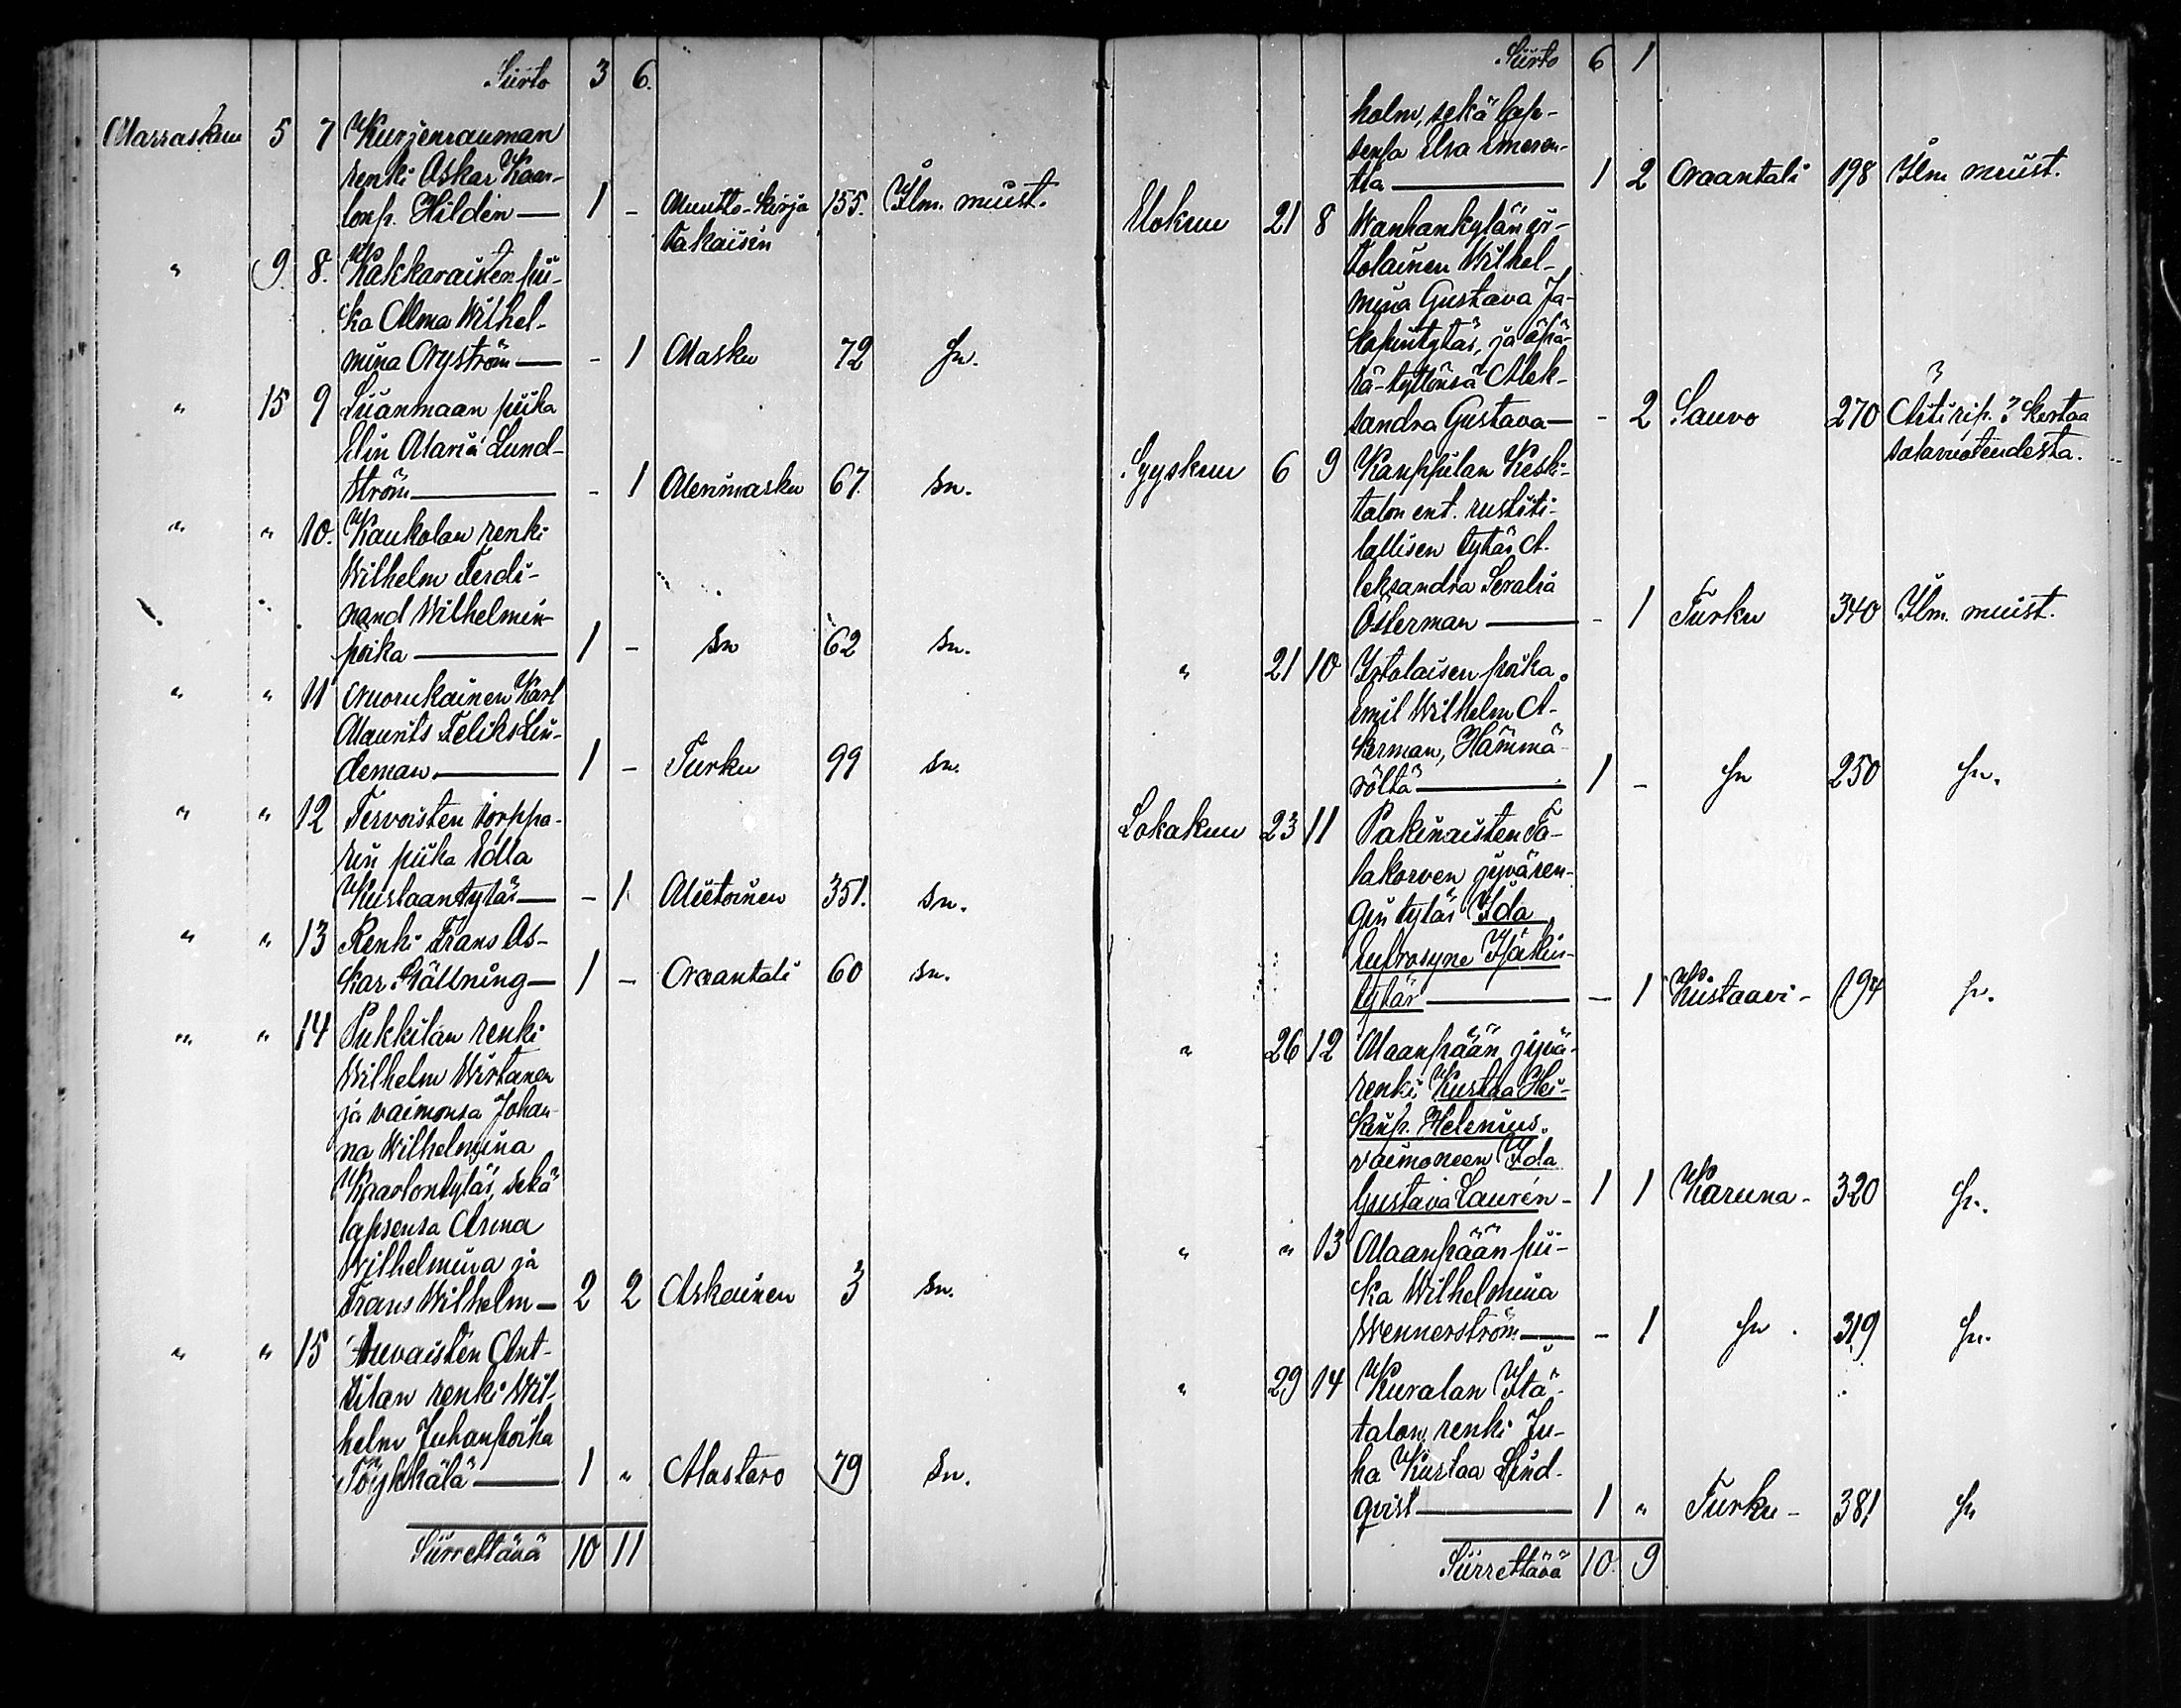 Siirto 3 6.
Marraskuu 5 7 Kurjenrauman
renki Oskar Kaar-
lonp. Hildén — 1 - Muutto-kirja 155. Ilm. muist.
takaisin
" 9. 8. Kakkaraisten pii-
ka Alma Wilhel-
mina Nyström — - 1 Masku 72 sn.
" 15 9 Liianmaan piika
Elin Maria Lund-
ström — - 1 Merimasku 67. sn.
" " 10. Kaukolan renki
Wilhelm Ferdi-
nand Wilhelmin-
poika — 1 - sn 62 sn.
" " 11 Nuorukainen Karl
Maurits Feliks Lin-
deman. — 1 - Turku 99 sn.
" " 12 Tervoisten torppa-
rin piika Edla
Kustaantytär — - 1 Mietoinen 351. sn.
" " 13 Renki Frans Os-
kar Hällning — 1 - Naantali 60 sn.
" " 14 Pukkilan renki
Wilhelm Wirtanen
ja vaimonsa Johan-
na Wilhelmina
Kaarlontytär, sekä
lapsensa Anna
Wilhelmina ja
Frans Wilhelm — 2 2 Askainen 3 sn.
" " 15 Auvaisten Ant-
tilan renki Wil-
helm Juhanpoika
Töykkälä — 1 " Alastaro 79 sn.
Siirrettävä 10 11
Siirto 6 1
holm, sekä lap-
sensa Elsa Emeren-
tia — 1 2 Naantali 198 Ilm muist.
Elokuu 21 8 Wanhankylän ir-
tolainen Wilhel-
mina Gustava Ja-
kopintytär, ja äpä-
rä-tyttönsä Alek-
sandra Gustava — - 2 Sauvo 270 Äiti rip. 3 kertaa
salavuoteudesta.
Syyskuu 6 9 Kamppilan Keski-
talon ent. rustiti-
lallisen tytär A-
leksandra Serafia
Österman — - 1 Turku 340 Ilm. muist.
" 21 10 Irtolaisen poika
Emil Wilhelm A-
kerman, Hämmä-
röltä — 1 - sn 250 sn.
Lokakuu 23 11 Pakinaisten Ta-
lakorven jyvären-
gin tytär Ida
Eufrosyne Isakin-
tytär — - 1 Kustaavi - 194 sn.
" 26 12 Maanpään jyvä-
renki Kustaa Hei-
kinp. Helenius
vaimoneen Ida
Gustava Laurén - 1 1 Karuna - 320 sn.
" " 13 Maanpään pii-
ka Wilhelmina
Wennerström — - 1 sn. 319 sn.
" 29 14 Kuralan Itä-
talon renki Ju-
ha Kustaa Lind-
qvist — 1 " Turku - 381 sn
Siirrettävä 10. 9